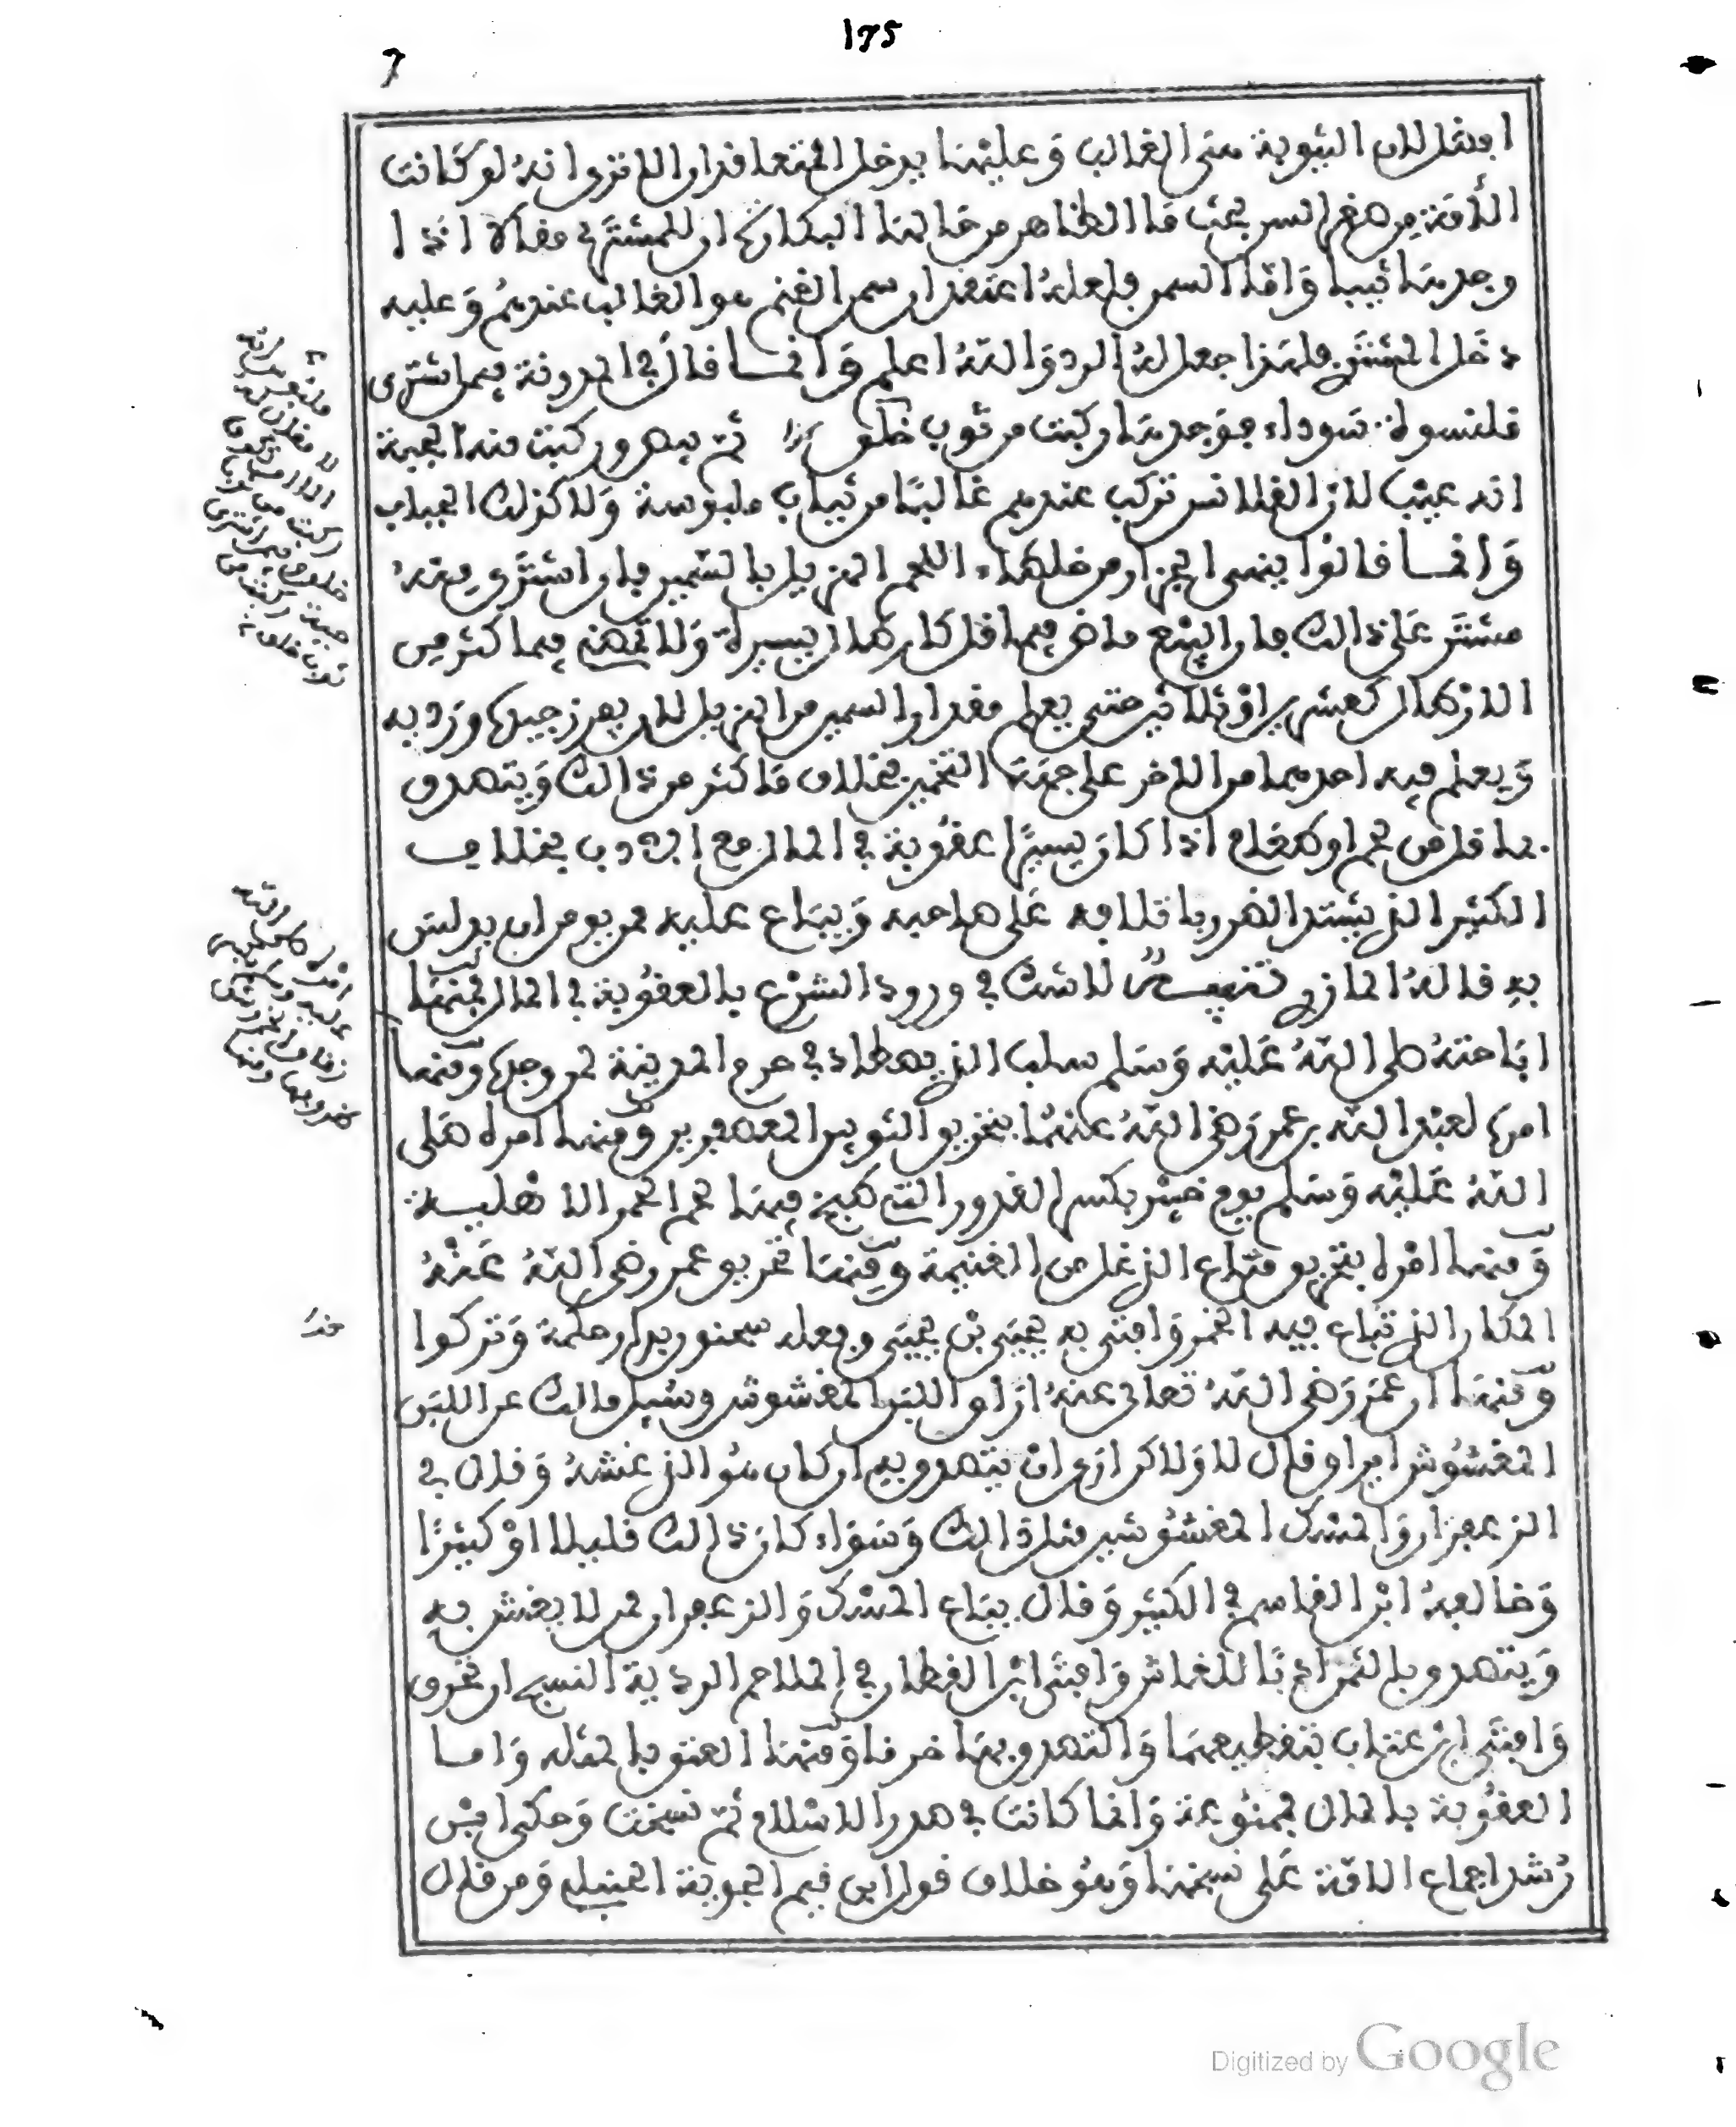 175
7
لان الثيوبة هي الغالب وعليهما يدخل المتعاقدان الا ترى انه لو كانت
الأمة من صغر السن بحيث ما الظاهر من حالها البكارة كان للمشتري مقالا اذا
وجدها ثيبا واما السمن فلعله اعتقد ان سمن الغنم هو الغالب عندهم وعليه
دخل المشتري فلهذا جعل له الرد والله اعلم وانما قال في المدونة فيمن اشترى
قلنسوة سوداء فوجدها ركبت من ثوب خلق كذا ثم بيهر وركبت منه الجبة
انه عيب لان القلانس تركب عندهم غالبا من ثياب ملبوسة ولا كذلك الجباب
وانما قالوا ينهى الجزار من خلط اللحم الهزيل بالسمين فان اشترى منه
مشتر على ذلك فان البيع ماض فيما قل كان طال يسيرة ولا تمض فيما كثر من
الارطال كعشرين او ثلاثين حتى يعلم مقدار السمين من الهزيل لان يعرز جيدها ورديه
ويعلم فيه احدهما من الاخر على جهة التخمين بخلاف ما كثر من ذلك ويتصدق
بما قل من لحم او طعام اذا كان يسيرا عقوبة في المال مع الادب بخلاف
الكثير الذي يشتد الضرر باتلافه على صاحبه ويباع عليه ممن يومن ان يدلس
به قاله المازري تنبيه لا شك في ورود الشرع بالعقوبة في المال فمنها
اباحته صلى الله عليه وسلم سلب الذي يصطاد في حرم المدينة لمن وجده ومنها
امره لعبد الله بن عمر رضي الله عنهما بتحريق الثوبين المعصفرين ومنها امره صلى
الله عليه وسلم يوم خيبر بكسر القدور التي طبخ فيها لحم الحمر الاهلية
ومنها امره بتحريق متاع الذي غل من الغنيمة ومنها تحريق عمر رضي الله عنه
المكان الذي تباع فيه الخمر وافتى به يحيى بن يحيى وفعله سحنون بدار حكمة وتركوا
ومنها ان عمر رضي الله تعالى عنه اراق اللبن المغشوش وسئل مالك عن اللبن
المغشوش ايراق قال لا ولاكن ارى ان يتصدق به ان كان هو الذي غشه وقال في
الزعفران والمسك المغشوشين مثل ذلك وسواء كان ذلك قليلا او كثيرا
وخالفه ابن القاسم في الكثير وقال يباع المسك والزعفران ممن لا يغش به
ويتصدق بالثمن ادبا للغاش وافتى ابن القطان في الملاحم الردية النسج ان تحرق
وافتى ابن عتاب بتقطيعها والتصدق بها خرقا ومنها العتق بالمثلة واما
العقوبة بالمال فممنوعة وانما كانت في صدر الاسلام ثم نسخت وحكى ابن
رشد اجماع الامة على نسخها وهو خلاف قول ابن قيم الجوزية الحنبلي ومن قال